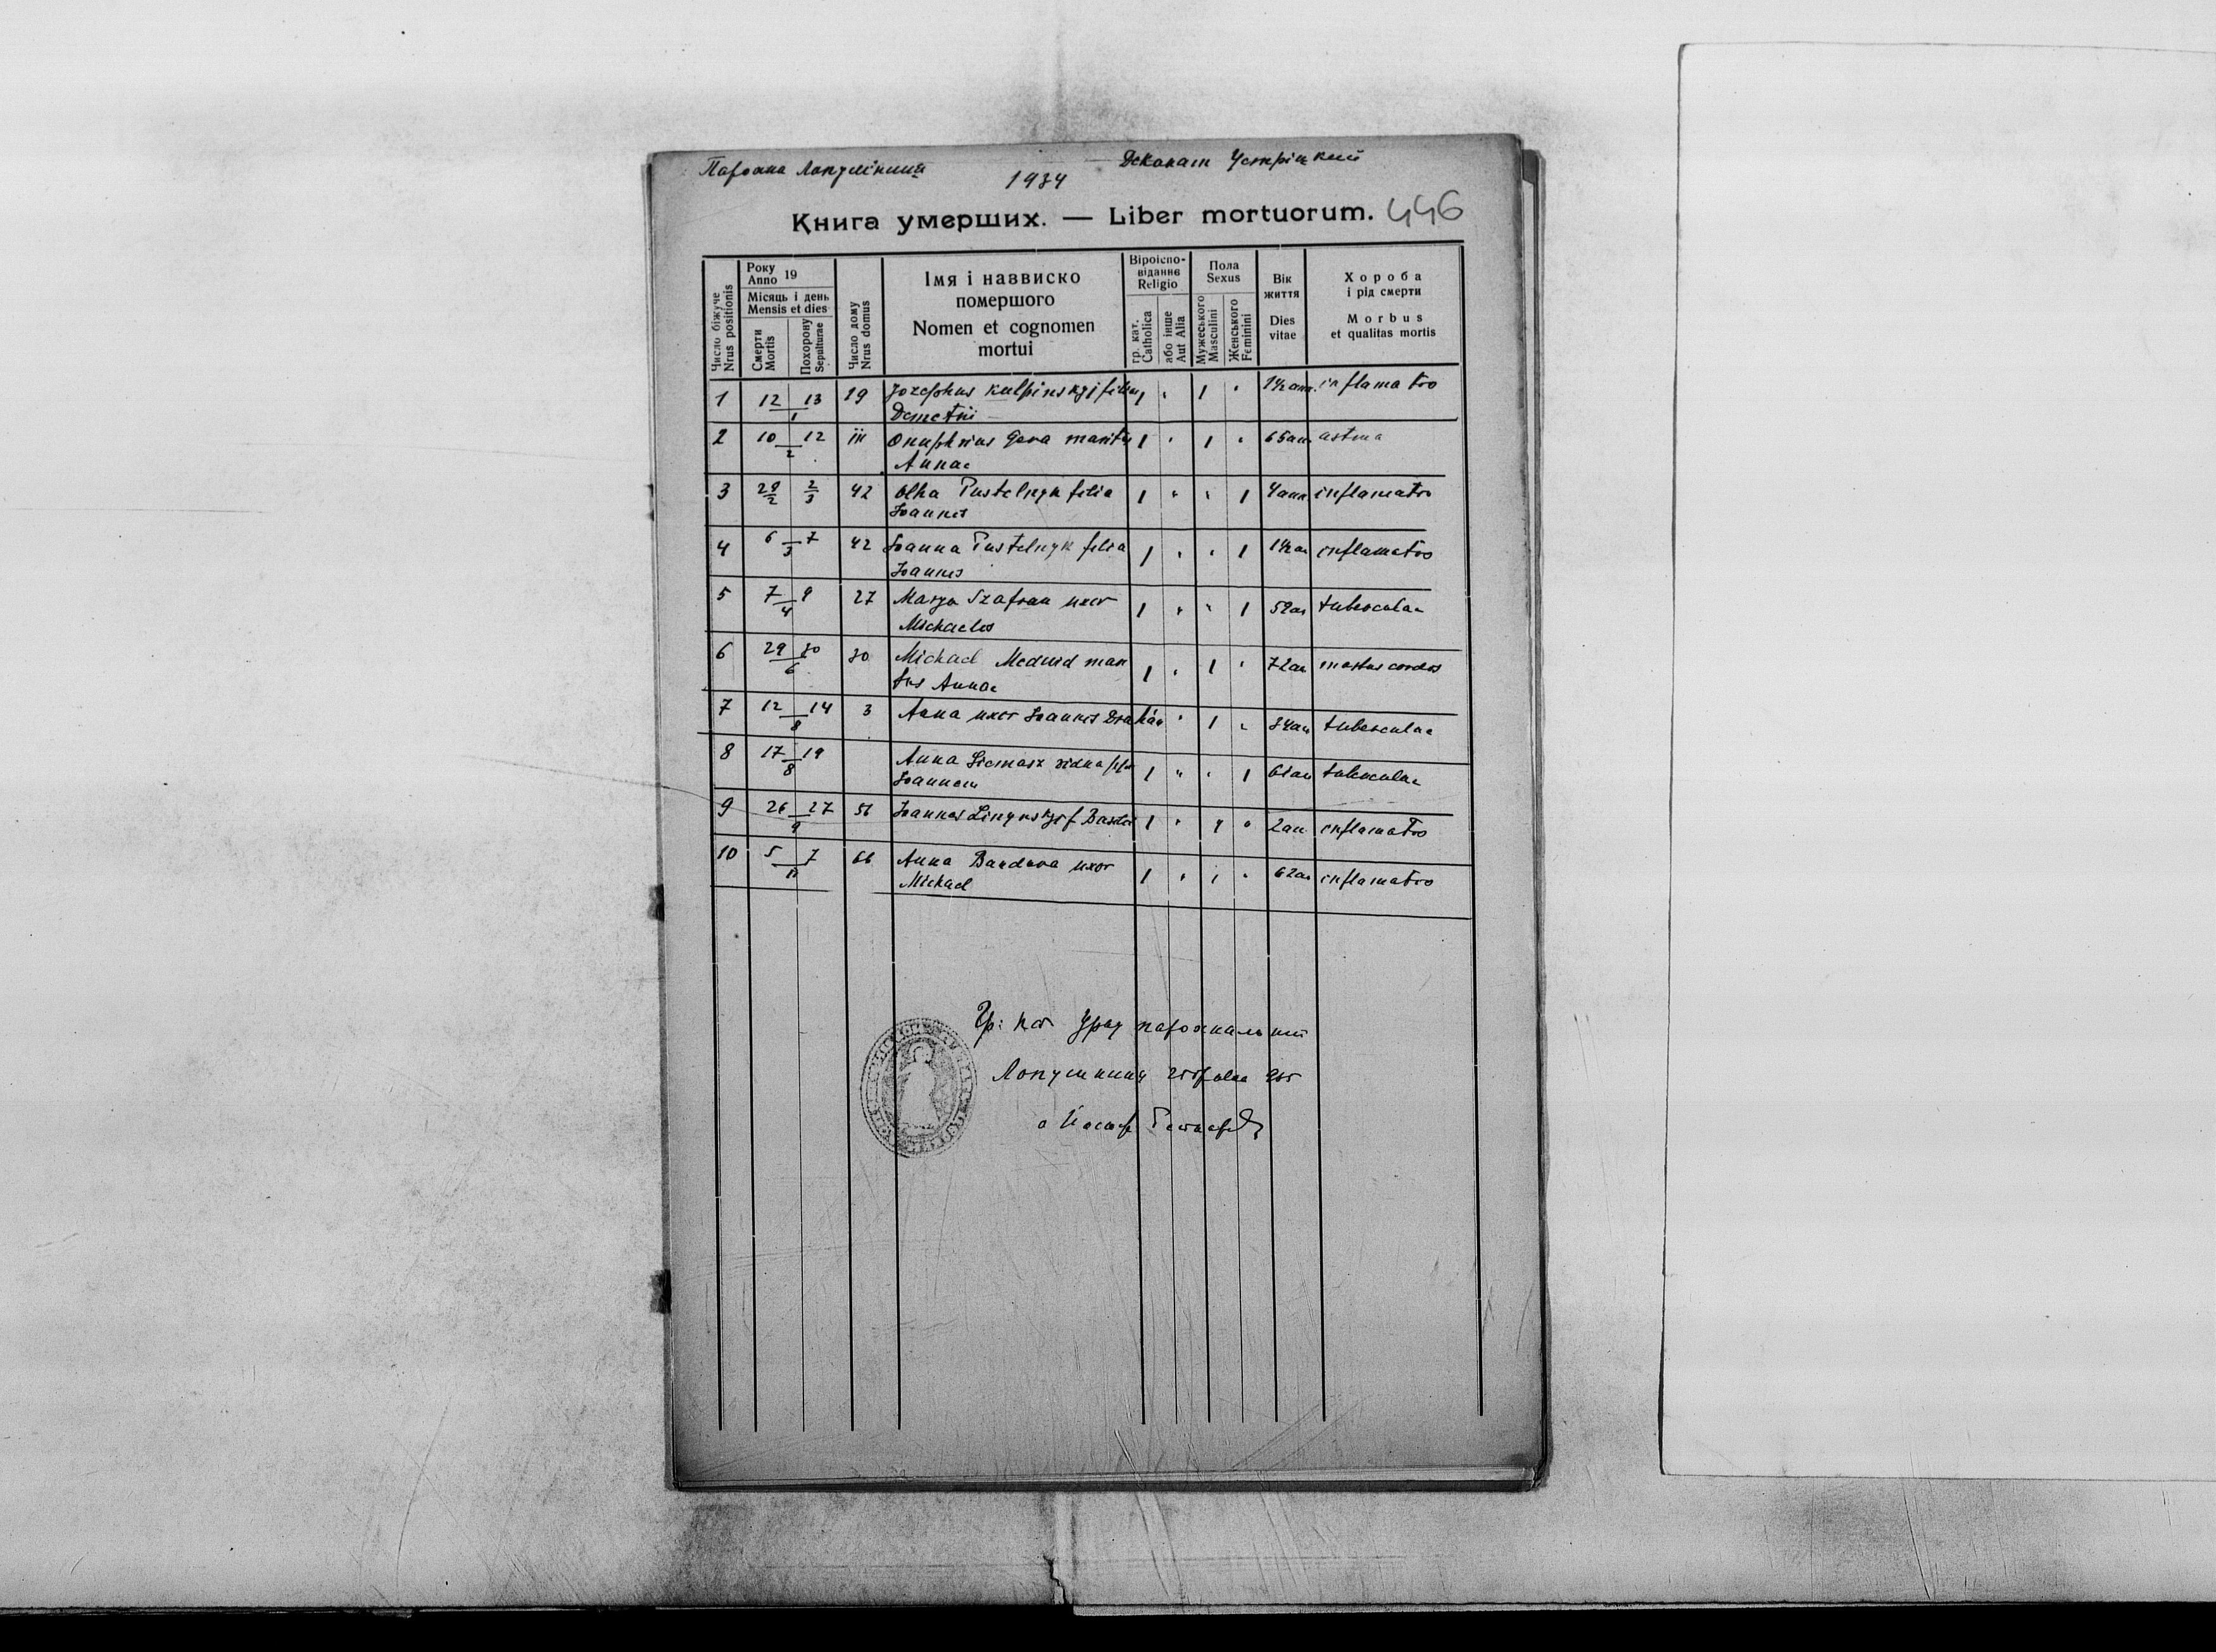 Деканат Устріцкий
1934
Книга умерших. — Liber mortuorum. 446
Число біжуче
Nrus positionis
Року
Anno 19
Місяць і день
Mensis et dies
Смерти
Mortis
Похорону
Sepulturae
Число дому
Nrus domus
Імя і наввиско
помершого
Nomen et cognomen
mortui
Віроіспо-
віданнє
Religio
гр. кат.
Catholica
або інше
Aut Alia
Пола
Sexus
Мужеського
Masculini
Женського
Feminini
Вік
життя
Dies
vitae
Хороба
і рід смерти
Morbus
et qualitas mortis
1 12 13 1 19 Jozephus Kulpinskyj filius 1 1 1½ ann. inflamatio
Demetrii
2 10 12 2 Onuphrius Gera maritus 1 1 65 ann astma
Annae
3 29/2 2/3 42 Olha Pustelnyk filia 1 1 4 ann inflamatio
Joannes
4 6 7 3 42 Joanna Pustelnyk filia 1 1 1½ an inflamatio
Joannes
5 7 9 4 27 Marya Szafran uxor 1 1 52 an tuberculae
Michaelis
6 29 30 6 30 Michael Medwid mari 1 1 72 an cordis
tus Annae
7 12 14 8 3 Anna uxor Joannes 1 34 an tuberculae
8 17 19 8 Anna vidua 1 1 61 an tuberculae
Joannem
9 26 27 9 56 Joannes 1 2 an inflamatio
10 5 7 11 66 Anna Bandera uxor 1 1 62 an inflamatio
Michael
Гр: кат Уряд парохіальний